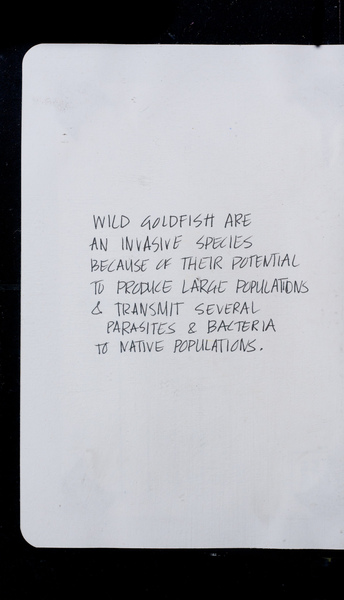 WILD GOLDFISH ARE
AN INVASIVE SPECIES
BECAUSE OF THEIR POTENTIAL
TO PRODUCE LARGE POPULATIONS
& TRANSMIT SEVERAL
PARASITES & BACTERIA
TO NATIVE POPULATIONS.